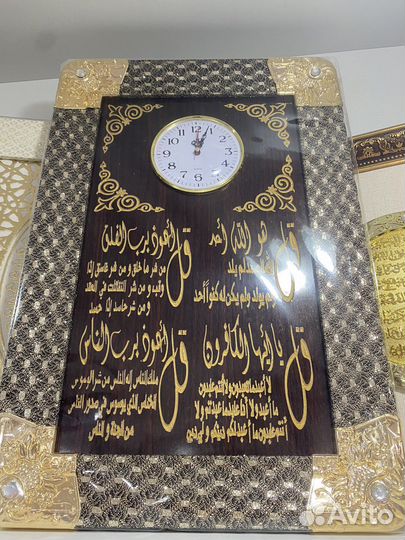 12 1 2 3 4 5 6 7 8 9 10 11
قل هو الله أحد
لم يلد
ولم يولد ولم يكن له كفوا أحد
قل أعوذ برب الفلق
من شر ما خلق و من شر غاسق إذا
وقب و من شر النفاثات في العقد
و من شر حاسد إذا حسد
قل يا أيها الكافرون
لا أعبد ما تعبدون ولا أنتم عابدون
ما أعبد ولا أنا عابد ما عبدتم ولا
أنتم عابدون ما أعبد لكم دينكم ولي دين
قل أعوذ برب الناس
ملك الناس إله الناس من شر الوسواس
الخناس الذي يوسوس في صدور الناس
من الجنة و الناس
Avito